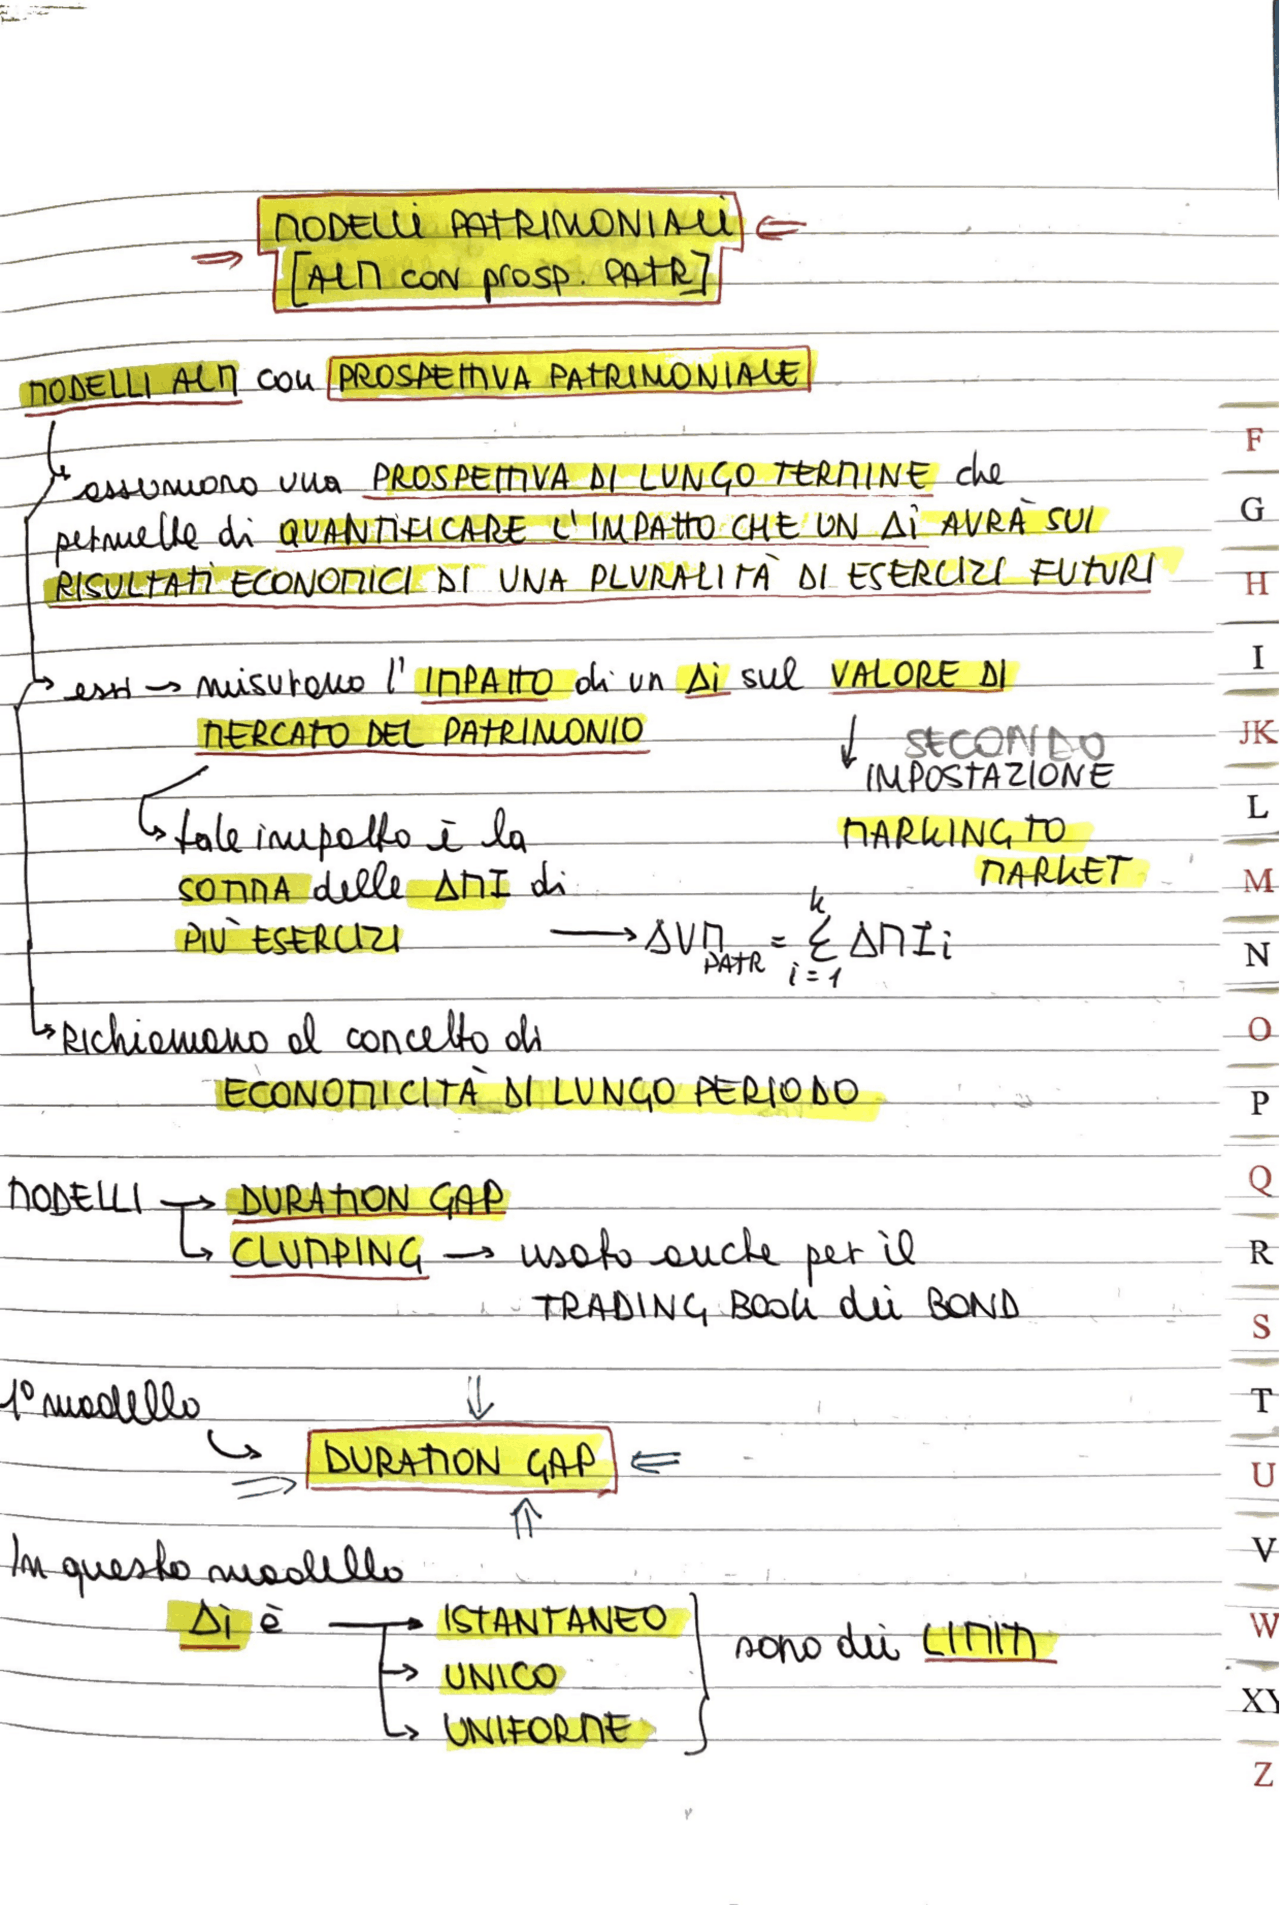 MODELLI PATRIMONIALI
[ALM CON PROSP. PATR]
MODELLI ALM con PROSPETTIVA PATRIMONIALE
assumono una PROSPETTIVA DI LUNGO TERMINE che
permette di QUANTIFICARE L'IMPATTO CHE UN Δi AVRÀ SUI
RISULTATI ECONOMICI DI UNA PLURALITÀ DI ESERCIZI FUTURI
essi → misurano l'IMPATTO di un Δi sul VALORE DI
MERCATO DEL PATRIMONIO
↓ SECONDO
IMPOSTAZIONE
MARKING TO
MARKET
tale impatto è la
SOMMA delle ΔMI di
PIÙ ESERCIZI → ΔVM PATR = k Σ i=1 ΔMIi
Richiamano al concetto di
ECONOMICITÀ DI LUNGO PERIODO
MODELLI → DURATION GAP
↳ CLUMPING → usato anche per il
TRADING BOOK dei BOND
1° modello
DURATION GAP
In questo modello
Δi è → ISTANTANEO
→ UNICO
→ UNIFORME
} sono dei LIMITI
F
G
H
I
JK
L
M
N
O
P
Q
R
S
T
U
V
W
XY
Z